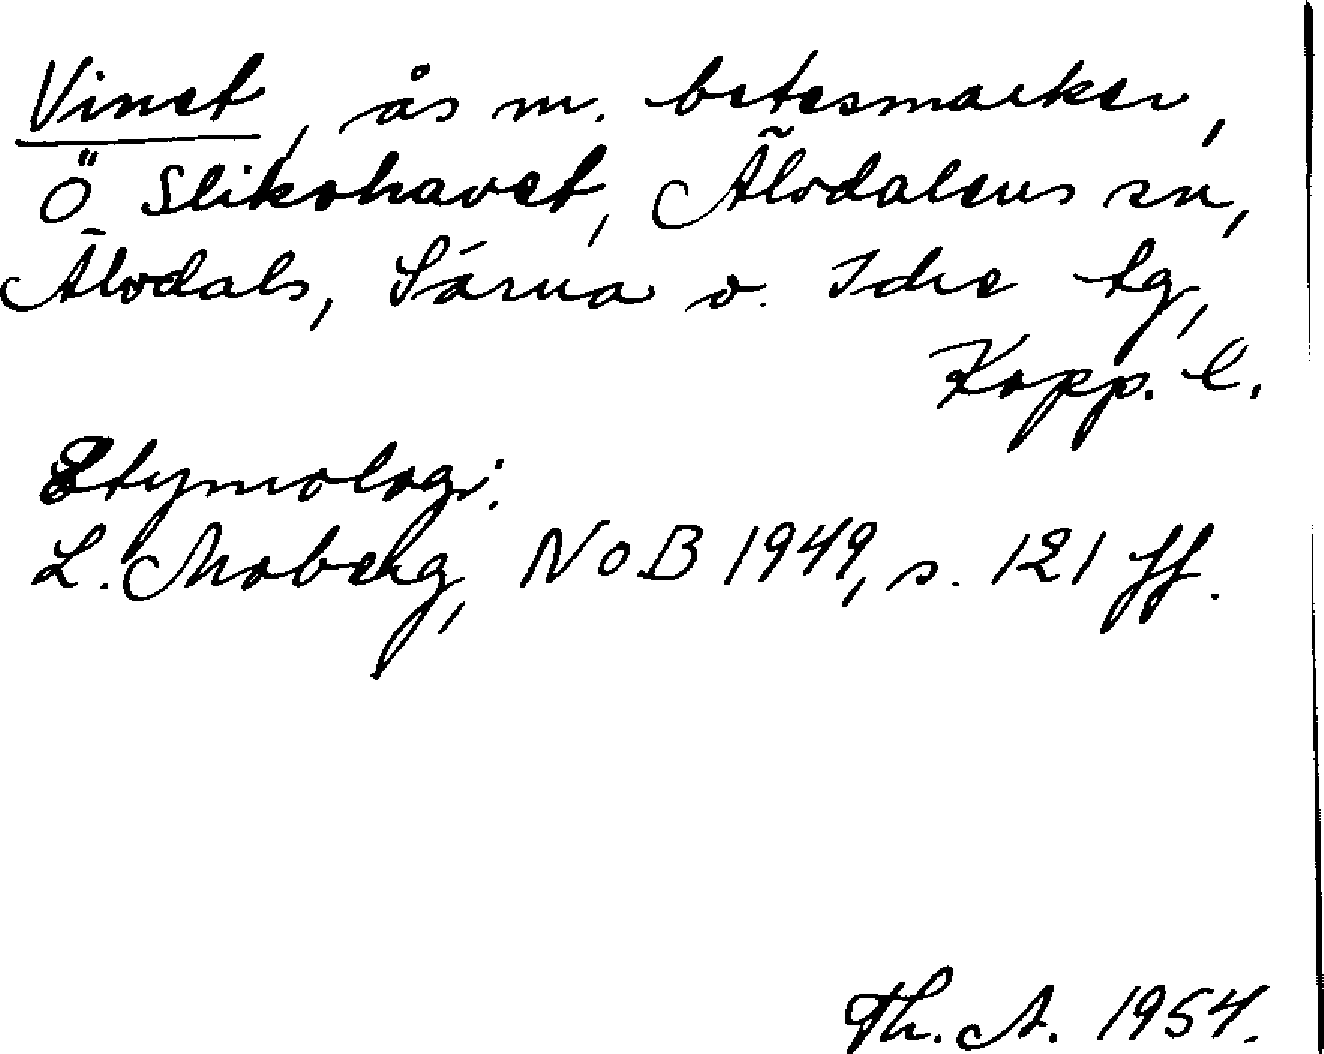 Vinet, ås m. betesmarker,
Ö Slikohavet, Älvdalens sn,
Älvdals, Särna o. Idre tg,
Kopp. l.
Etymologi:
L. Moberg, NoB 1949, s. 121 ff.
Th. A. 1954.